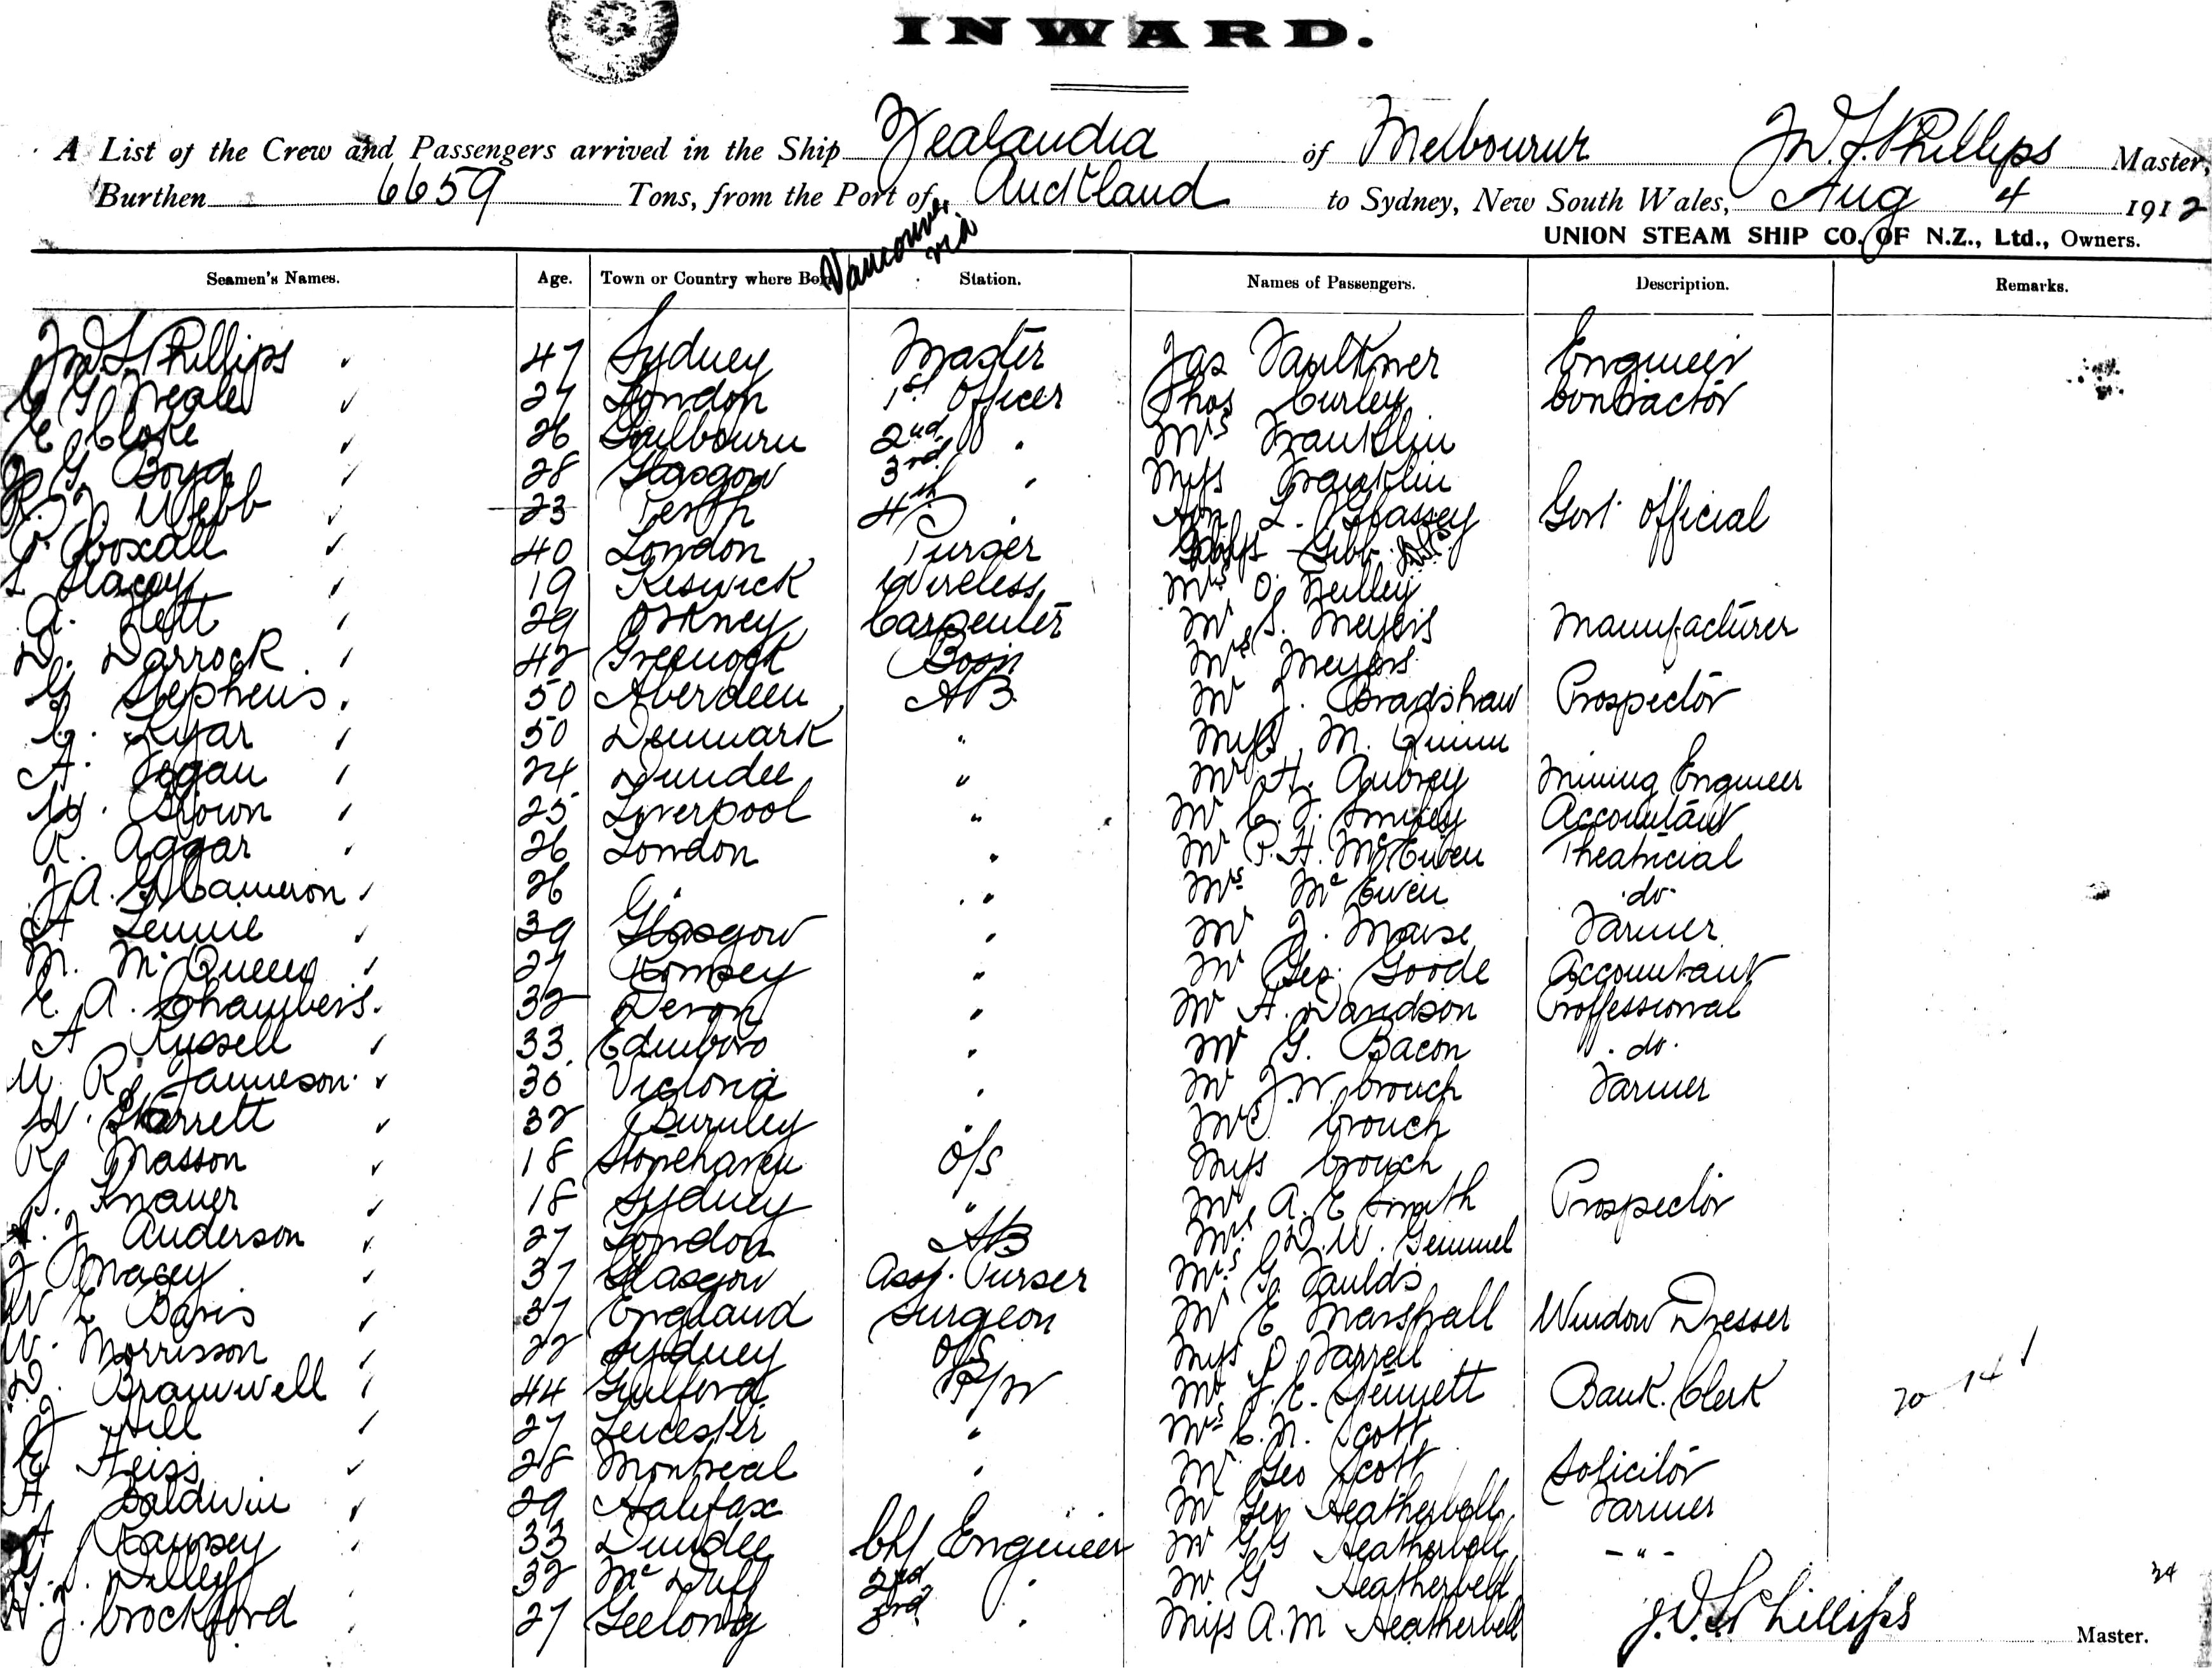 INWARD.
A List of the Crew and Passengers arrived in the Ship Zealandia of Melbourne J.W.F. Phillips Master,
Burthen 6659 Tons, from the Port of Vancouver via Auckland to Sydney, New South Wales, Aug 4 1912
UNION STEAM SHIP CO. OF N.Z., Ltd., Owners.
Seamen's Names. Age. Town or Country where Born Station. Names of Passengers. Description. Remarks.
Phillips 47 Sydney Master Jas Faulkner Engineer
Neale 27 London 1st Officer Thos Curley Contractor
E. Cloke 26 Goulbourn 2nd " Mrs Franklin
G. Boyd 28 Glasgow 3rd " Miss Franklin
Webb 23 Perth 4th " Hon L. Govt Official
Boxall 40 London Purser
Stacey 19 Keswick Wireless Mrs O.
A. Flett 29 Orkney Carpenter Mr S. Meyers Manufacturer
D. Darrock 42 Greenock Bosn Mrs Meyers
Stephens 50 Aberdeen AB Mr J. Bradshaw Prospector
Kyar 50 Denmark " Miss M. Quinn
A. 24 Dundee " Mr H. Aubrey Mining Engineer
W. Brown 25 Liverpool " Mr C. J. Accountant
R. Aggar 26 London " Mr P. H. McEwen Theatricial
J.A. G. Cameron 26 " Mrs McEwen do
A Lennie 39 Glasgow " Mr J. Maise Farmer
M. McQueen 27 Romsey " Mr Geo. Goode Accountant
E. A. Chambers 32 Devon " Mr A. Davidson Proffessional
A Russell 33 Edinboro " Mr G. Bacon do
R. Jamieson 30 Victoria " Mr J.W. Crouch Farmer
W. Starrett 32 Burnley " Mrs Crouch
R Masson 18 Stonehaven O/S Miss Crouch
Knauer 18 Sydney " Mr A. E Smith Prospector
J Anderson 27 London AB Mrs D. W. Gemmel
J Macey 37 Glasgow Asst. Purser Mrs G. Faulds
W E Davis 37 England Surgeon Mr E Marshall Window Dresser
W. Morrisson 22 Sydney O/S Miss Farrell
D. Bramwell 44 Guilford P/W Mr J. E. Bank Clerk 20 14
J Hill 27 Leicester " Mrs C. N. Scott
E Heiss 28 Montreal " Mr Geo Scott Solicitor
A. Baldwin 29 Halifax Mr Geo Heatherbell Farmer
Ramsey 33 Dundee Chf Engineer Mr G G Heatherbell "
Dilley 32 McDuff 2nd " Mr G Heatherbell 34
J. Crockford 27 Geelong 3rd " Miss A.M Heatherbell
J.W.F. Phillips Master.